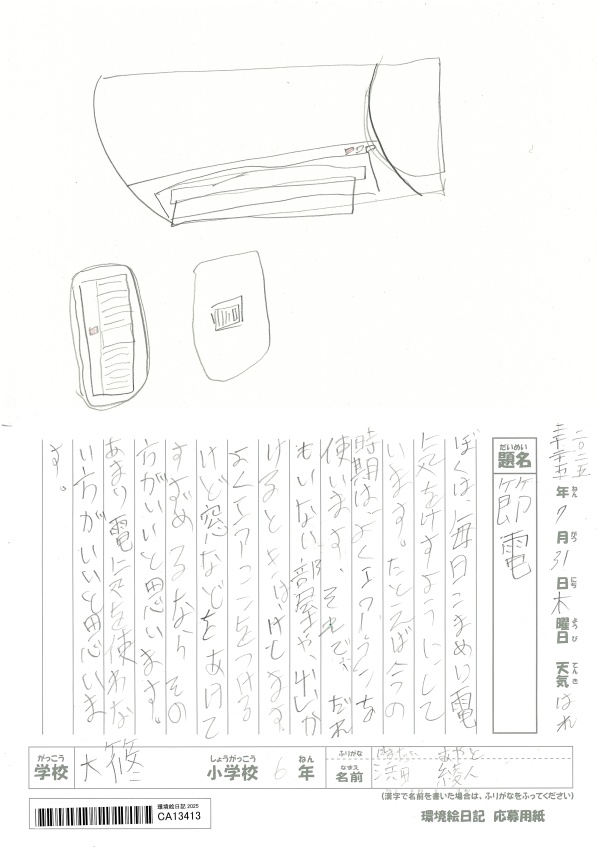 二〇二五年7月31日木曜日 天気はれ
題名 節電
ぼくは、毎日こまめに電
気をけすようにして
います。たとえば今の
時期は、よくエアコンを
使います。それで、だれ
もいない部屋や、出か
けるときは、けします。
よくエアコンをつける
けど窓などをあけて
すずめるなら、その
方がいいと思います。
あまり電気を使わな
い方がいいと思いま
す。
がっこう 学校 大篠 しょうがっこう 小学校 6 ねん 年
ふりがな あやと
なまえ 名前 綾人
(漢字で名前を書いた場合は、ふりがなをふってください)
環境絵日記 2025
CA13413
環境絵日記 応募用紙